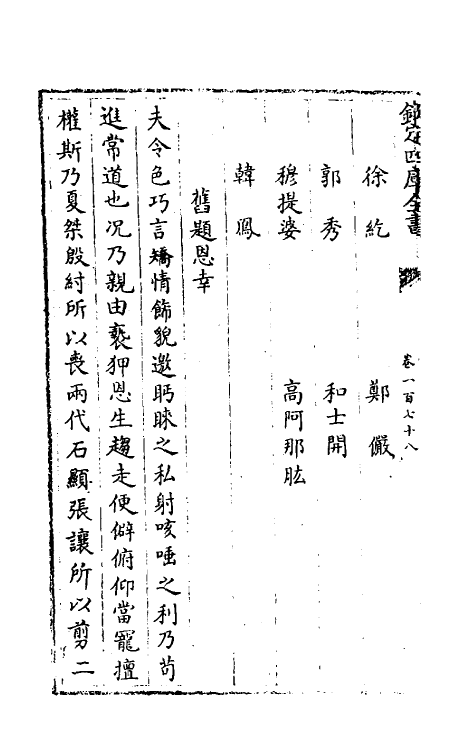 欽定四庫全書
卷一百七十八
徐紇 鄭儼
郭秀 和士開
穆提婆 高阿那肱
韓鳳
舊題恩幸
夫令色巧言矯情飾貌邀眄睞之私射咳唾之利乃苟
進常道也况乃親由褻狎恩生趨走便僻俯仰當寵擅
權斯乃夏桀殷紂所以喪兩代石顯張讓所以剪二